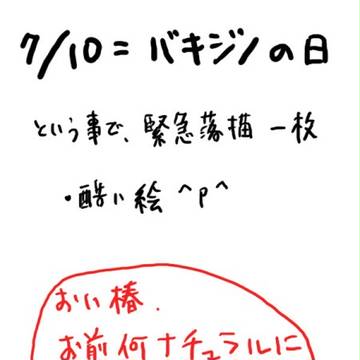 7/10=バキジノの日
という事で、緊急落描一枚
・酷い絵^p^
おい椿.
お前何ナチュラルに